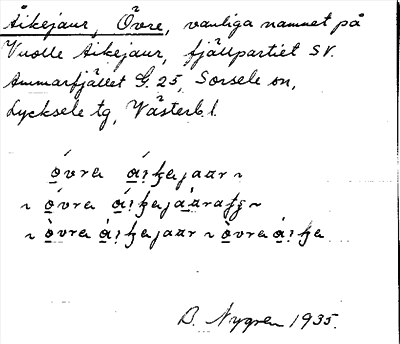 Äikejaur, Övre, vanliga namnet på
Vuolle Aikejaur, fjällpartiet SV.
Ammarfjället G. 25, Sorsele sn,
Lycksele tg, Västerb. l.
óvra ái̯ķejaar ~
~ óvra ái̯ķejàarats ~
~ òvra ài̯ķejaar ~ òvra ài̯ķe
B. Nygren 1935.